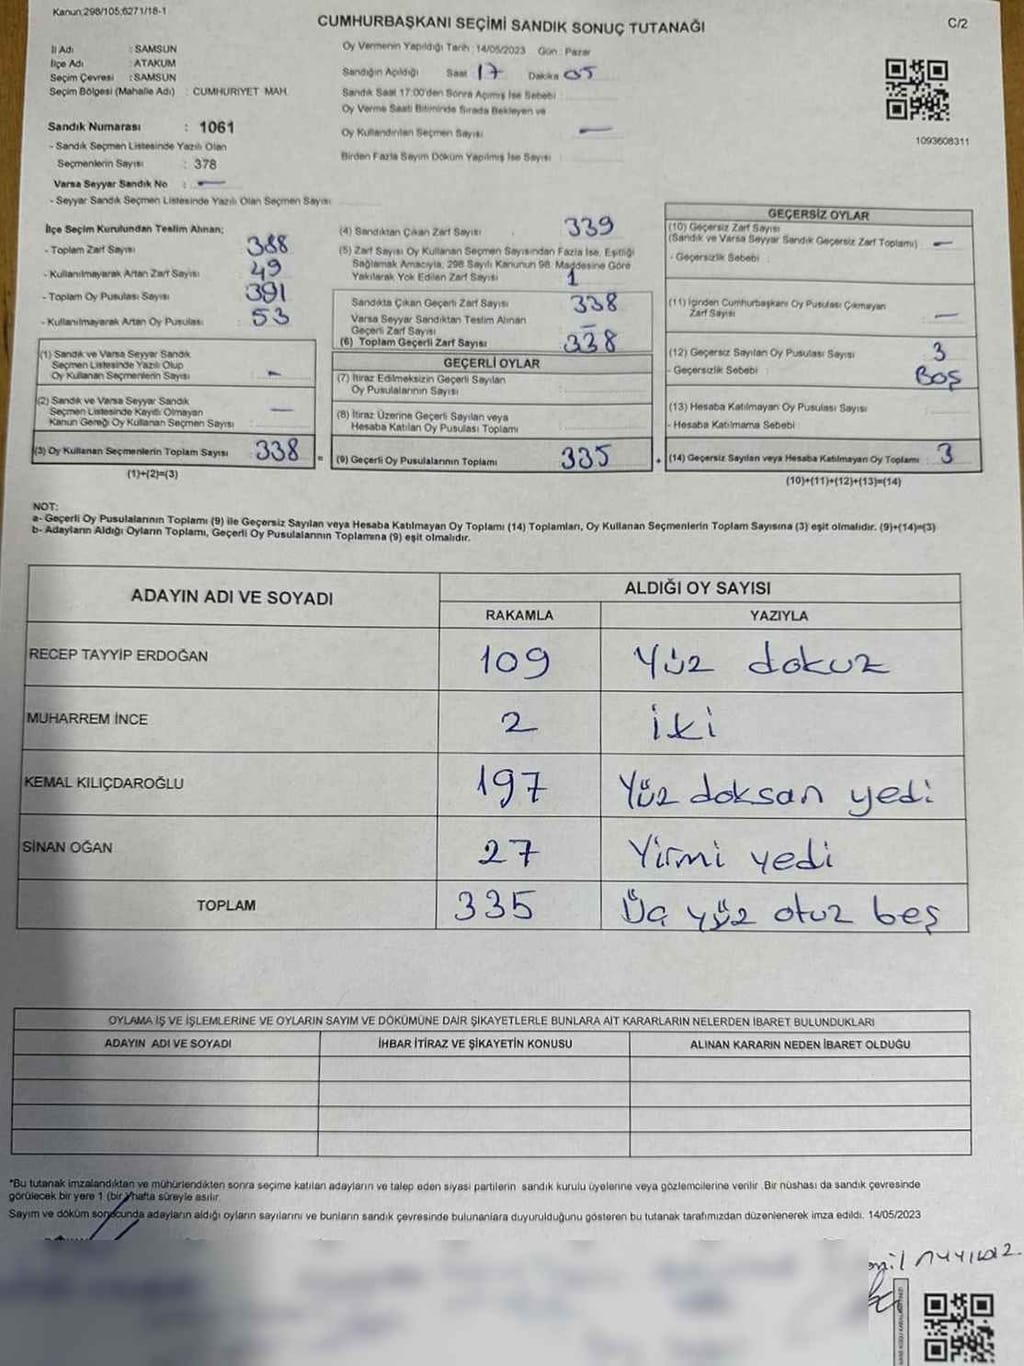 Kanun:298/105;6271/18-1
CUMHURBAŞKANI SEÇİMİ SANDIK SONUÇ TUTANAĞI
C/2
İl Adı : SAMSUN
İlçe Adı : ATAKUM
Seçim Çevresi : SAMSUN
Seçim Bölgesi (Mahalle Adı) : CUMHURİYET MAH.
Sandık Numarası : 1061
- Sandık Seçmen Listesinde Yazılı Olan
Seçmenlerin Sayısı : 378
Varsa Seyyar Sandık No : —
- Seyyar Sandık Seçmen Listesinde Yazılı Olan Seçmen Sayısı
Oy Vermenin Yapıldığı Tarih : 14/05/2023 Gün : Pazar
Sandığın Açıldığı Saat 17 Dakika 05
Sandık Saat 17:00'den Sonra Açılmış İse Sebebi :
Oy Verme Saati Bitiminde Sırada Bekleyen ve
Oy Kullandırılan Seçmen Sayısı —
Birden Fazla Sayım Döküm Yapılmış İse Sayısı :
1093608311
İlçe Seçim Kurulundan Teslim Alınan;
- Toplam Zarf Sayısı 388
- Kullanılmayarak Artan Zarf Sayısı 49
- Toplam Oy Pusulası Sayısı 391
- Kullanılmayarak Artan Oy Pusulası : 53
(1) Sandık ve Varsa Seyyar Sandık
Seçmen Listesinde Yazılı Olup
Oy Kullanan Seçmenlerin Sayısı : —
(2) Sandık ve Varsa Seyyar Sandık
Seçmen Listesinde Kayıtlı Olmayan
Kanun Gereği Oy Kullanan Seçmen Sayısı : —
(3) Oy Kullanan Seçmenlerin Toplam Sayısı 338 =
(1)+(2)=(3)
(4) Sandıktan Çıkan Zarf Sayısı : 339
(5) Zarf Sayısı Oy Kullanan Seçmen Sayısından Fazla İse, Eşitliği
Sağlamak Amacıyla, 298 Sayılı Kanunun 98. Maddesine Göre
Yakılarak Yok Edilen Zarf Sayısı 1
Sandıkta Çıkan Geçerli Zarf Sayısı 338
Varsa Seyyar Sandıktan Teslim Alınan
Geçerli Zarf Sayısı —
(6) Toplam Geçerli Zarf Sayısı 338
GEÇERLİ OYLAR
(7) İtiraz Edilmeksizin Geçerli Sayılan
Oy Pusulalarının Sayısı :
(8) İtiraz Üzerine Geçerli Sayılan veya
Hesaba Katılan Oy Pusulası Toplamı :
(9) Geçerli Oy Pusulalarının Toplamı 335 +
GEÇERSİZ OYLAR
(10) Geçersiz Zarf Sayısı
(Sandık ve Varsa Seyyar Sandık Geçersiz Zarf Toplamı) —
- Geçersizlik Sebebi :
(11) İçinden Cumhurbaşkanı Oy Pusulası Çıkmayan
Zarf Sayısı —
(12) Geçersiz Sayılan Oy Pusulası Sayısı 3
- Geçersizlik Sebebi : BOŞ
(13) Hesaba Katılmayan Oy Pusulası Sayısı
- Hesaba Katılmama Sebebi :
(14) Geçersiz Sayılan veya Hesaba Katılmayan Oy Toplamı : 3
(10)+(11)+(12)+(13)=(14)
NOT:
a- Geçerli Oy Pusulalarının Toplamı (9) ile Geçersiz Sayılan veya Hesaba Katılmayan Oy Toplamı (14) Toplamları, Oy Kullanan Seçmenlerin Toplam Sayısına (3) eşit olmalıdır. (9)+(14)=(3)
b- Adayların Aldığı Oyların Toplamı, Geçerli Oy Pusulalarının Toplamına (9) eşit olmalıdır.
ADAYIN ADI VE SOYADI ALDIĞI OY SAYISI
RAKAMLA YAZIYLA
RECEP TAYYİP ERDOĞAN 109 Yüz dokuz
MUHARREM İNCE 2 iki
KEMAL KILIÇDAROĞLU 197 Yüz doksan yedi
SİNAN OĞAN 27 Yirmi yedi
TOPLAM 335 Üç yüz otuz beş
OYLAMA İŞ VE İŞLEMLERİNE VE OYLARIN SAYIM VE DÖKÜMÜNE DAİR ŞİKAYETLERLE BUNLARA AİT KARARLARIN NELERDEN İBARET BULUNDUKLARI
ADAYIN ADI VE SOYADI İHBAR İTİRAZ VE ŞİKAYETİN KONUSU ALINAN KARARIN NEDEN İBARET OLDUĞU
*Bu tutanak imzalandıktan ve mühürlendikten sonra seçime katılan adayların ve talep eden siyasi partilerin sandık kurulu üyelerine veya gözlemcilerine verilir .Bir nüshası da sandık çevresinde
görülecek bir yere 1 (bir) hafta süreyle asılır.
Sayım ve döküm sonucunda adayların aldığı oyların sayılarını ve bunların sandık çevresinde bulunanlara duyurulduğunu gösteren bu tutanak tarafımızdan düzenlenerek imza edildi. 14/05/2023